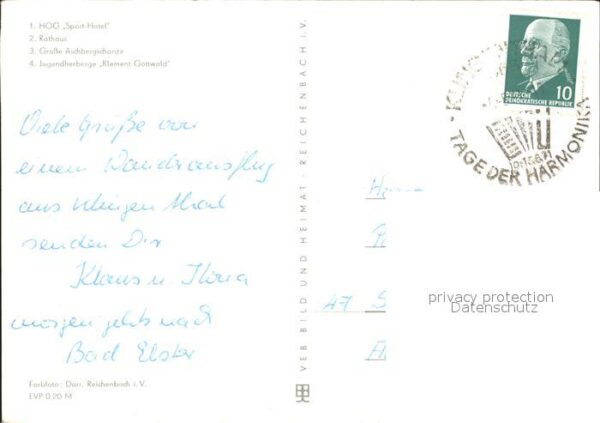 1. HOG „Sport-Hotel"
2. Rathaus
3. Große Aschbergschanze
4. Jugendherberge „Klement Gottwald"
Viele Grüße von
einem Wanderausflug
aus Klingenthal
senden Dir
Klaus u.
morgen gehts nach
Bad Elster
Farbfoto: Darr, Reichenbach i. V.
EVP 0,20 M
VEB BILD UND HEIMAT · REICHENBACH i. V.
10
DEUTSCHE
DEMOKRATISCHE REPUBLIK
TAGE DER HARMONIKA
47 S
privacy protection
Datenschutz